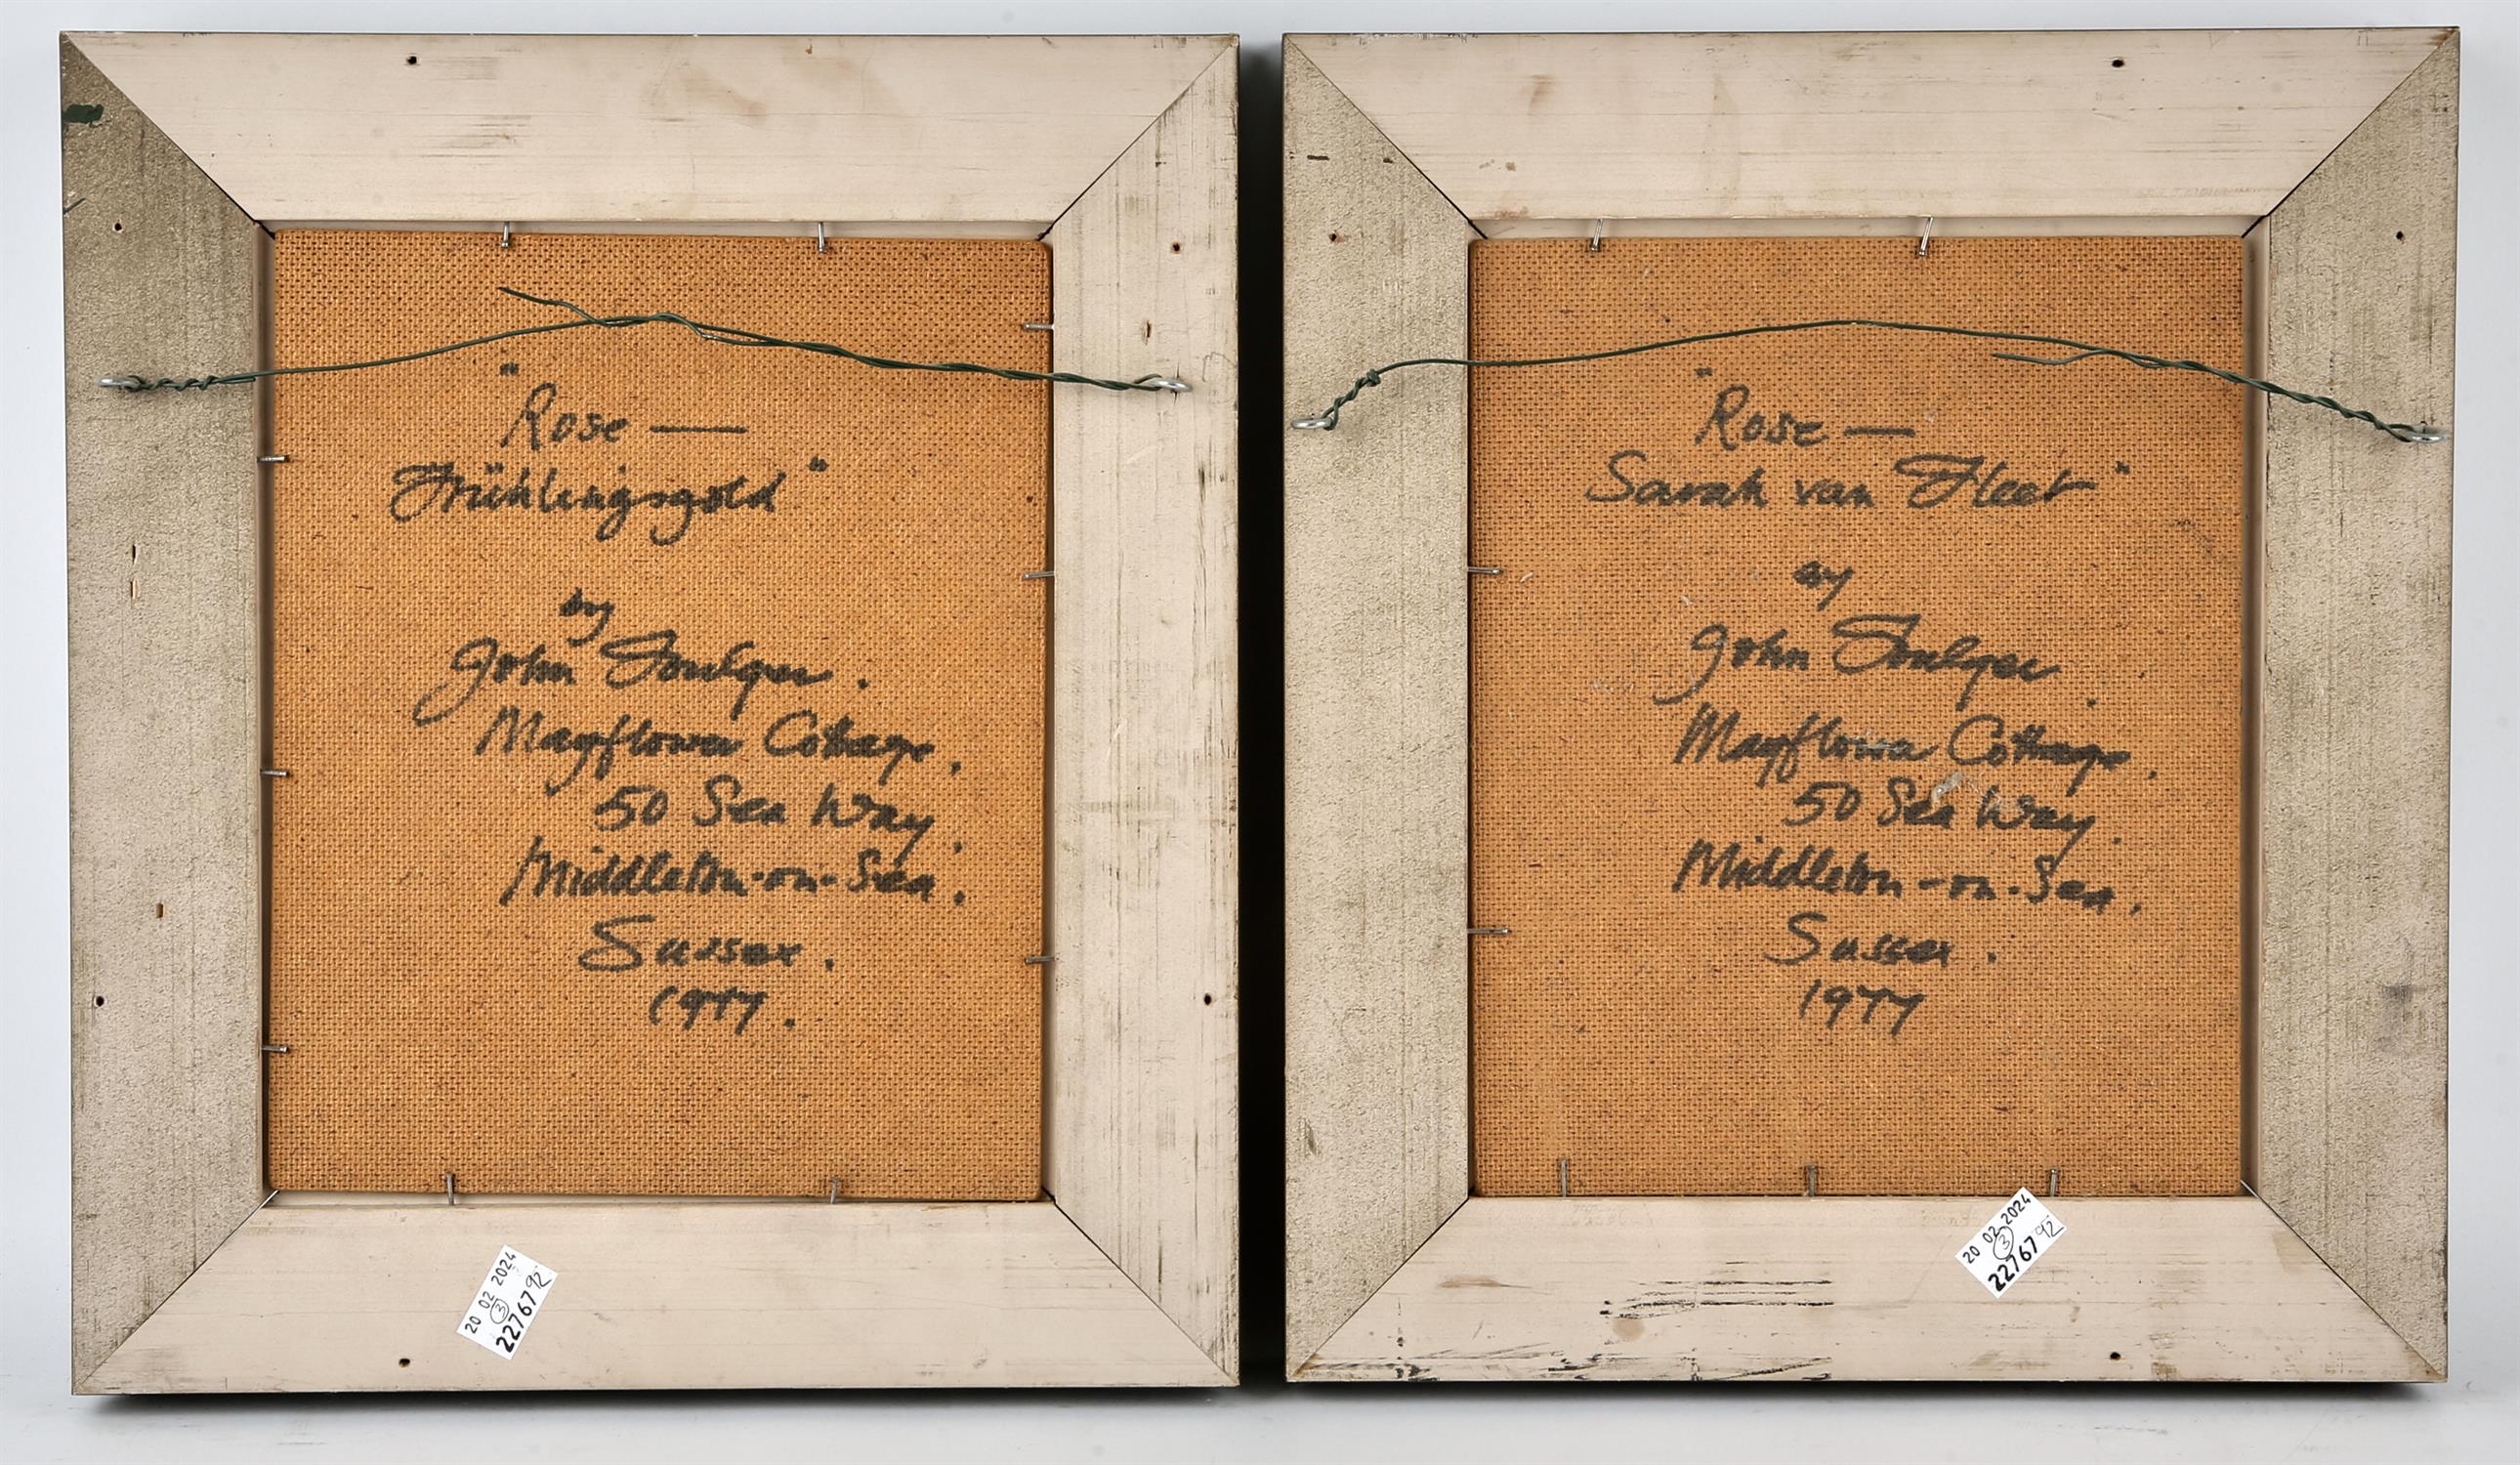 "Rose —
Frühlingsgold"
by
John Foulger.
Mayflower Cottage.
50 Sea Way.
Middleton-on-Sea.
Sussex.
1977.
20 02 2024
3
2276792
"Rose —
Sarah van Fleet"
by
John Foulger.
Mayflower Cottage.
50 Sea Way.
Middleton-on-Sea.
Sussex.
1977
20 02 2024
3
2276792